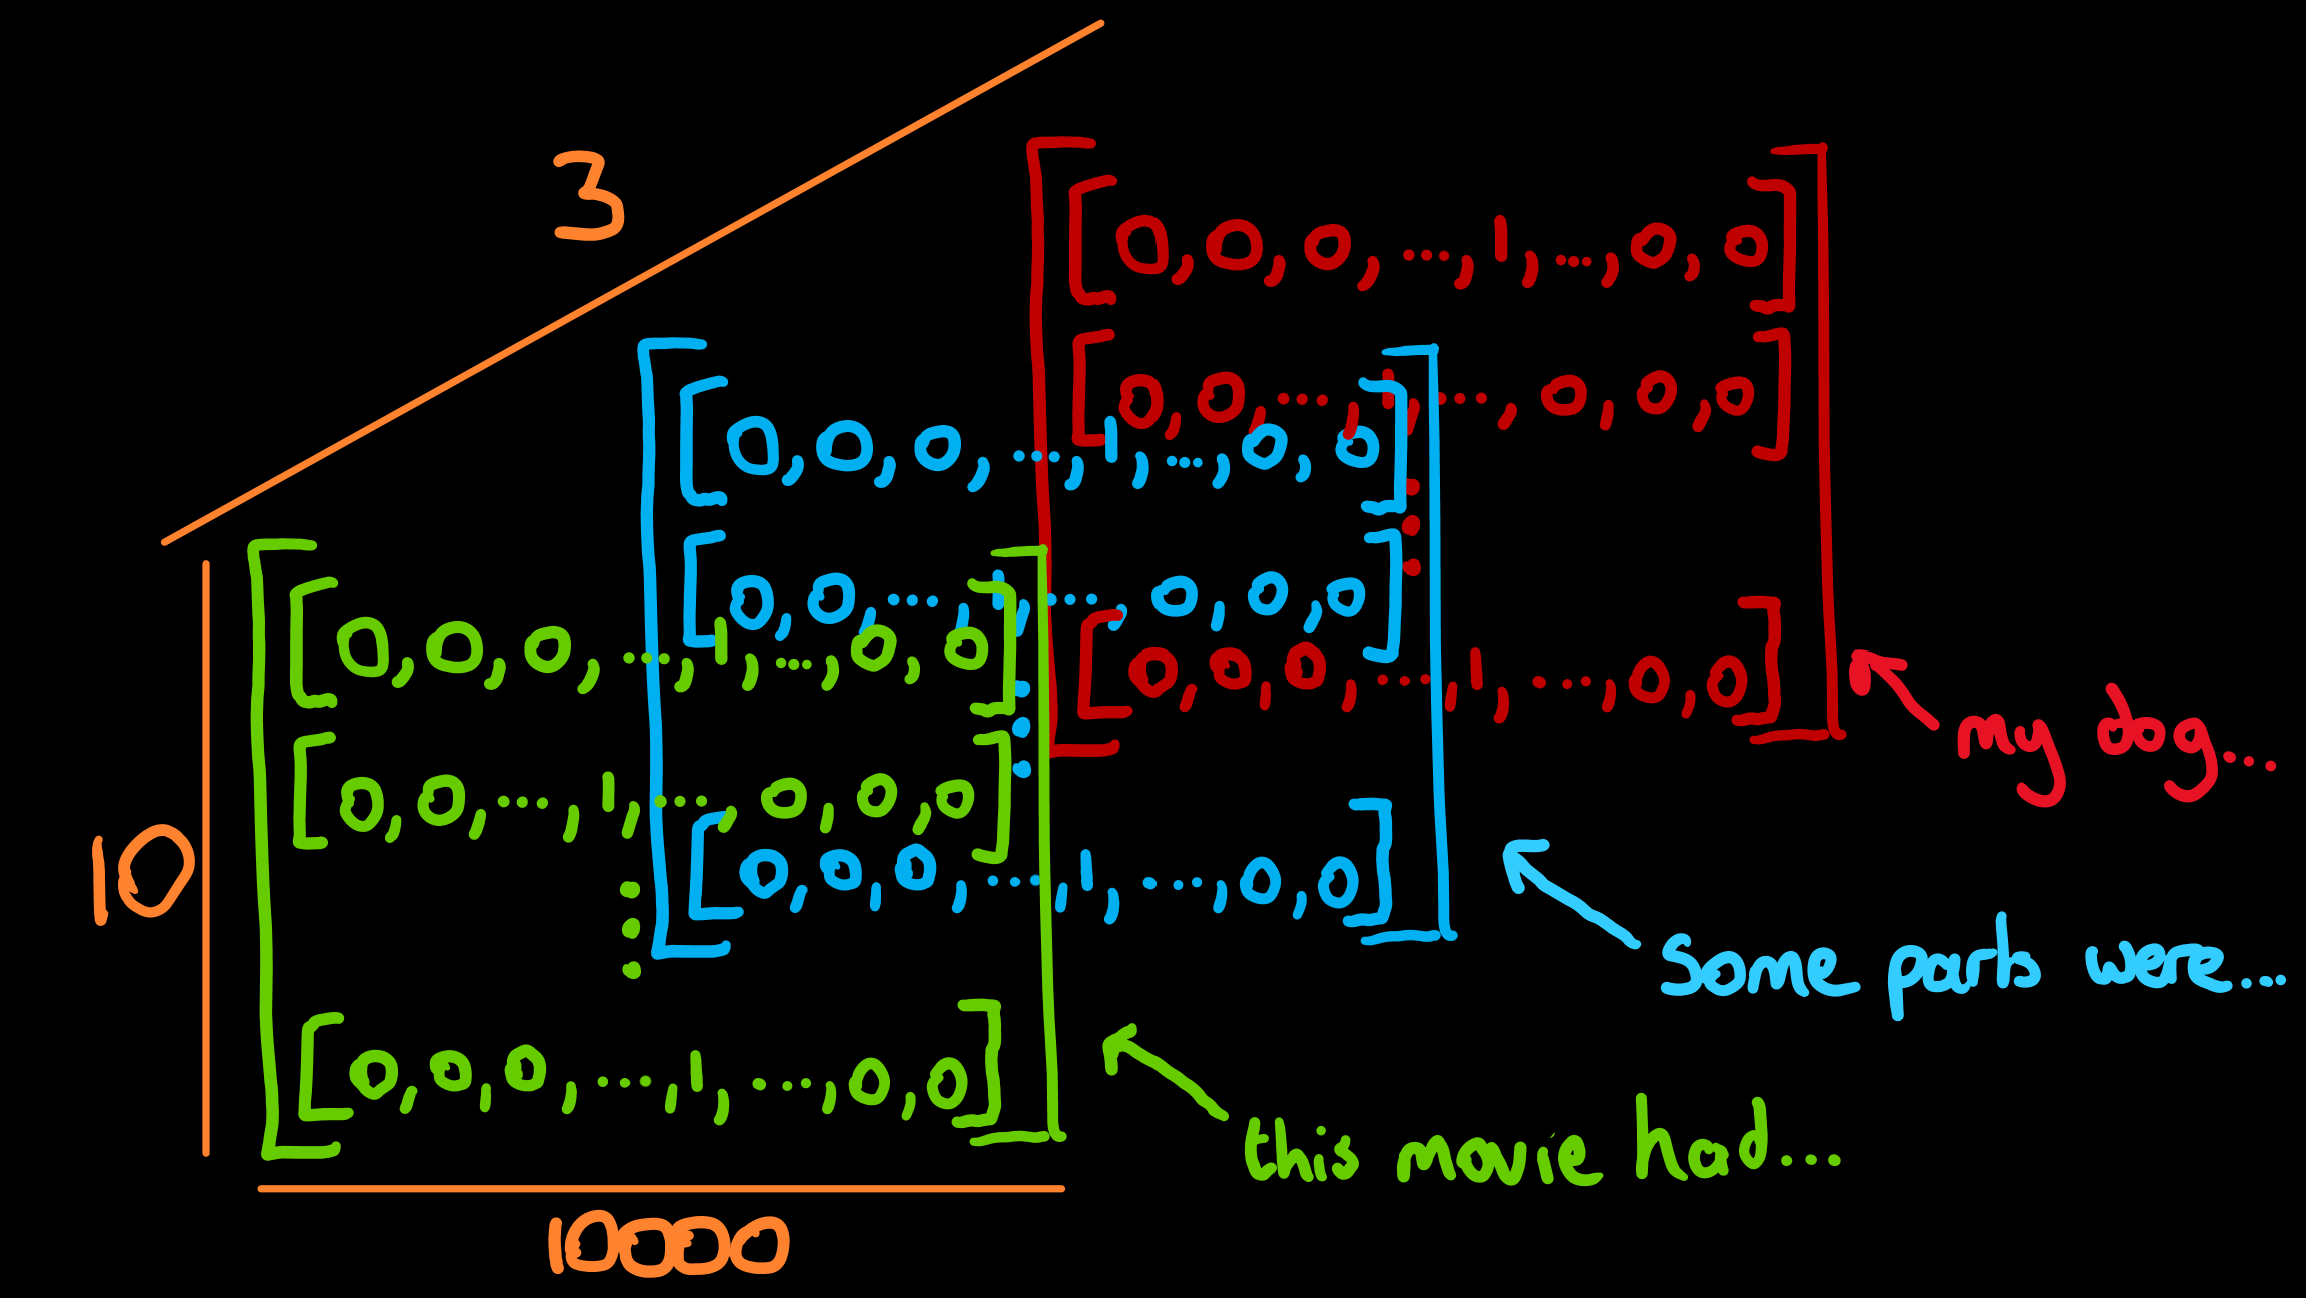 3
[[0, 0, 0, ..., 1, ..., 0, 0]
[0, 0, ..., 1, ..., 0, 0, 0]
⋮
[0, 0, 0, ..., 1, ..., 0, 0]]
my dog...
[[0, 0, 0, ..., 1, ..., 0, 0]
[0, 0, ..., 1, ..., 0, 0, 0]
⋮
[0, 0, 0, ..., 1, ..., 0, 0]]
some parts were...
10
[[0, 0, 0, ..., 1, ..., 0, 0]
[0, 0, ..., 1, ..., 0, 0, 0]
⋮
[0, 0, 0, ..., 1, ..., 0, 0]]
this movie had...
10000